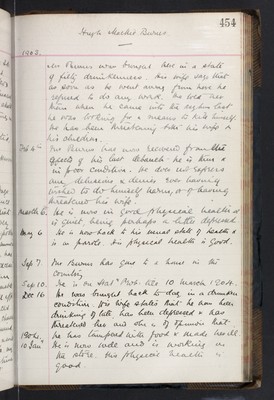 454
Hugh Mackie Burns
1903.
Mr Burns was brought here in a state
of filthy drunkenness. His wife says that
as soon as he went away from here he
refused to do any work. He told
when he came into the asylum that
he was looking for a means to kill himself.
He has been threatening his wife &
his children.
Feb 4th Mr Burns has now recovered from the
effects of his last debauch. He is thin &
in poor condition. He does not express
any delusions & denies ever having
wished to do himself harm, or of having
threatened his wife.
March 6. He is now in good physical health &
is quiet, being perhaps a little depressed
May 6 He is now back to his usual state of health &
is on parole. His physical health is good.
Sep 7 Mr Burns has gone to a house in the
country
Sep 10. He is on Stat. Prob. till 10 March 1904.
Dec 16 He was brought back to day in a drunken
condition. His wife states that he has been
drinking of late, has been depressed & has
threatened her and she is of opinion that
1904. he has tampered with food & made her ill
10 Jan He is now well and is working in
the store. His physical health is
good